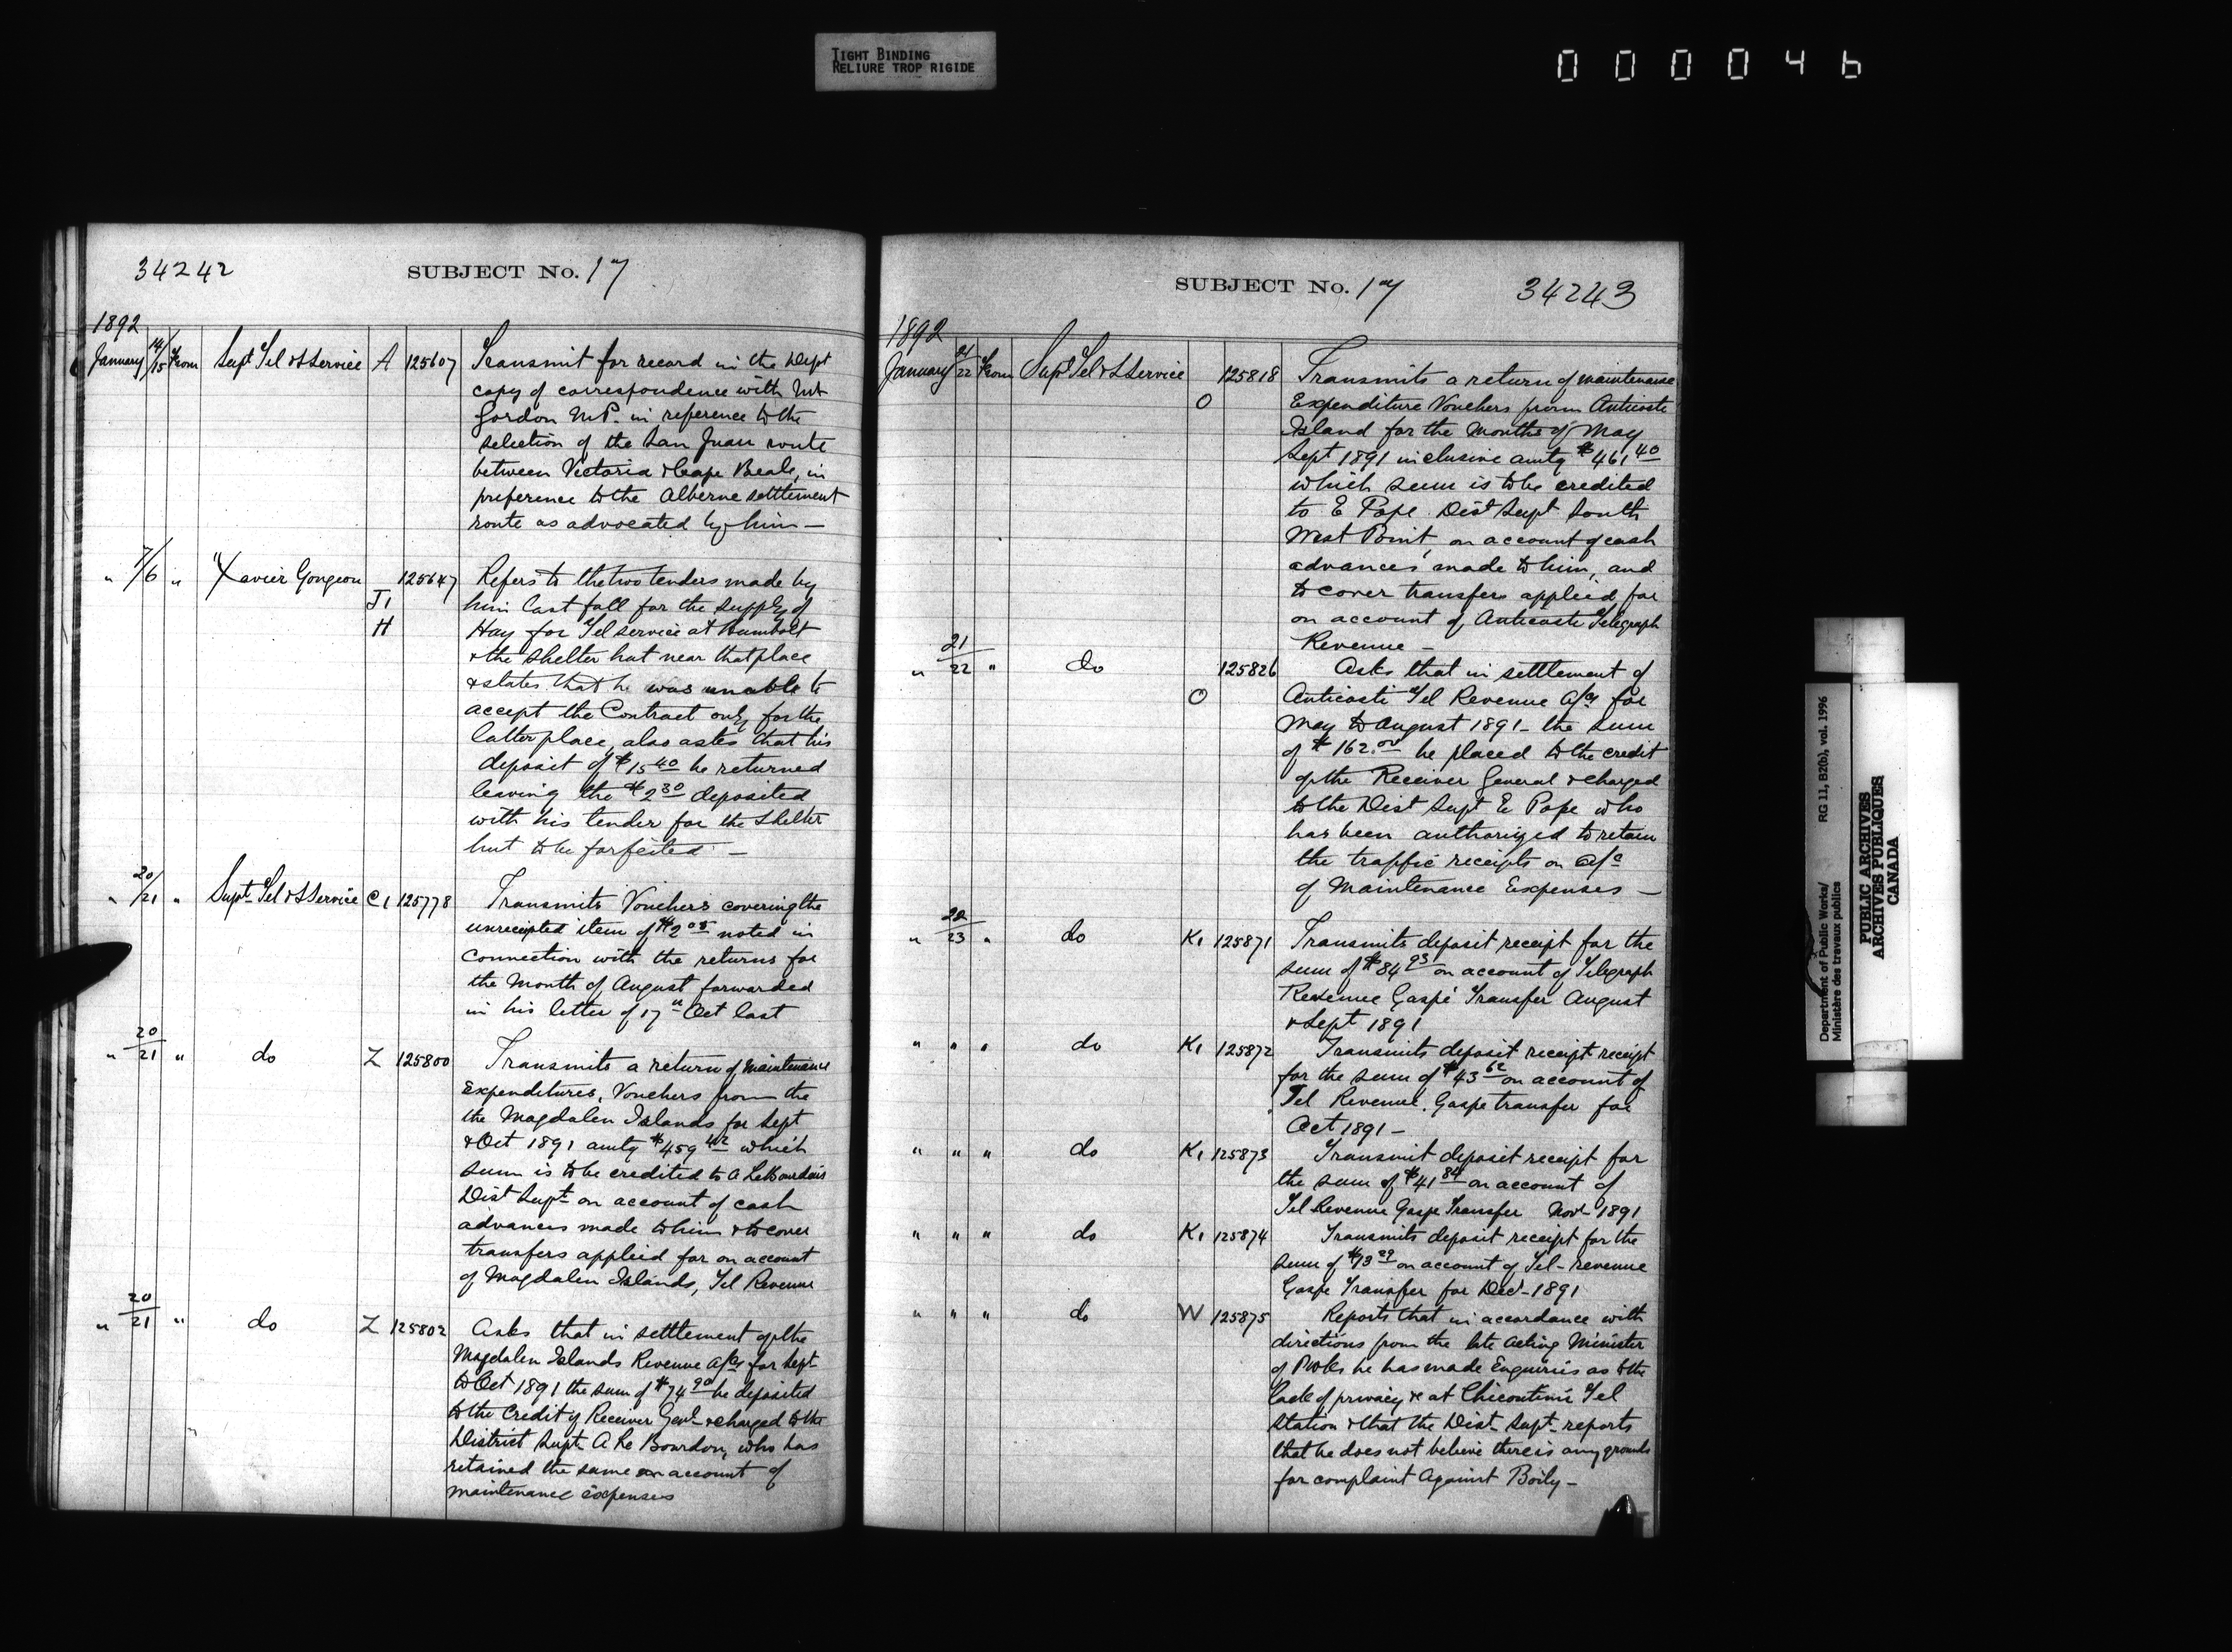 TIGHT BINDING
RELIURE TROP RIGIDE
000046
34242
SUBJECT No. 17
1892
January 14/15 From Supt Tel & S Service A 125607 Transmit for record in the Dept
copy of correspondence with Mr
Gordon M.P. in reference to the
selection of the San Juan route
between Victoria & Cape Beale, in
preference to the Alberne settlement
route as advocated by him —
" 7/6 " Xavier Gongeon J1 H 125647 Refers to the two tenders made by
him last fall for the supply of
Hay for Tel service at Humbolt
& the shelter hut near that place
& states that he was unable to
accept the Contract only for the
latter place, also asks that his
deposit of $15 40 be returned
leaving the $2 30 deposited
with his tender for the shelter
hut to be forfeited —
" 20/21 " Supt Tel & S Service C1 125778 Transmits Vouchers covering the
unreceipted item of $2 05 noted in
connection with the returns for
the Month of August forwarded
in his letter of 17th Oct last
" 20/21 " do Z 125800 Transmits a return of Maintenance
Expenditures, Vouchers from the
the Magdalen Islands for Sept
& Oct 1891 amtg $459 42 which
sum is to be credited to A LeBourdais
Dist Supt on account of cash
advances made to him & to cover
transfers applied for on account
of Magdalen Islands, Tel Revenue
" 20/21 " do Z 125802 Asks that in settlement of the
Magdalen Islands Revenue a/cs for Sept
to Oct 1891 the sum of $74 90 be deposited
to the Credit of Receiver Genl & charged to the
District Supt A Le Bourdon, who has
retained the same on account of
maintenance expenses
SUBJECT No. 17
34243
1892
January 21/22 From Supt Tel & S Service O 125818 Transmits a return of maintenance
Expenditure Vouchers from Anticoste
Island for the Months of May
Sept 1891 inclusive amtg $461 40
which sum is to be credited
to E Pope Dist Supt South
West Point, on account of cash
advances made to him, and
to cover transfers applied for
on account of Anticoste Telegraph
Revenue —
" 21/22 " do O 125826 Asks that in settlement of
Anticosti Tel Revenue a/cs for
May to August 1891 – the sum
of $162.00 be placed to the credit
of the Receiver General & charged
to the Dist Supt E Pope who
has been authorized to retain
the traffic receipts on a/c
of Maintenance Expenses —
" 22/23 " do K1 125871 Transmits deposit receipt for the
sum of $84 93 on account of Telegraph
Revenue Gaspé Transfer August
& Sept 1891
" " " do K1 125872 Transmits deposit receipt receipt
for the sum of $43 62 on account of
Tel Revenue, Gaspe transfer for
Oct 1891 –
" " " do K1 125873 Transmit deposit receipt for
the sum of $41 84 on account of
Tel Revenue Gaspe Transfer Novr 1891
" " " do K1 125874 Transmits deposit receipt for the
sum of $73 29 on account of Tel – revenue
Gaspe Transfer for Decr – 1891
" " " do W 125875 Reports that in accordance with
directions from the late Acting Minister
of P Wks he has made Enquiries as to the
lack of privacy &c at Chicoutimi Tel
Station & that the Dist Supt reports
that he does not believe there is any grounds
for complaint Against Boily –
Department of Public Works/ RG 11, B2(b), vol. 1996
Ministère des travaux publics
PUBLIC ARCHIVES
ARCHIVES PUBLIQUES
CANADA